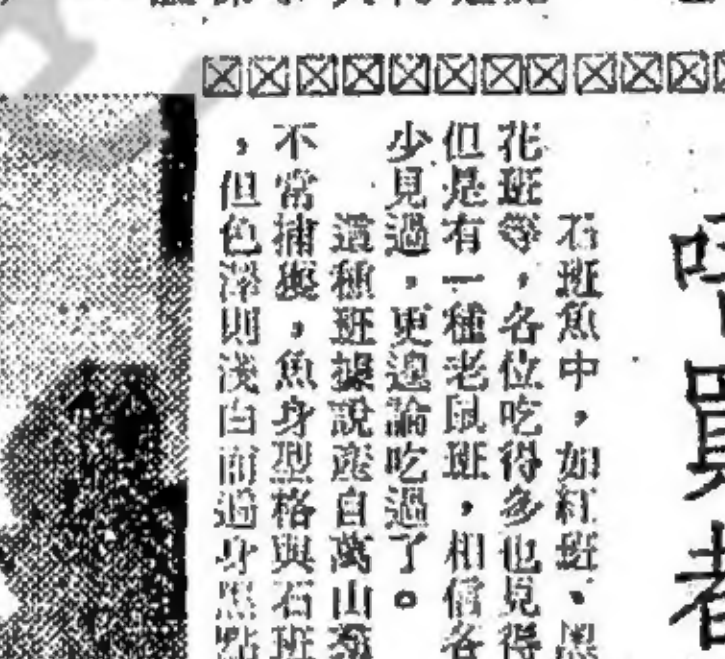 石斑魚中，如紅斑、黑
花斑等，各位吃得多也見得
但是有一種老鼠斑，相信各
少見過，更遑論吃過了。
這種斑據說產自萬山
不常捕獲，魚身型格與石斑
，但色澤則淺白而過身黑點
者